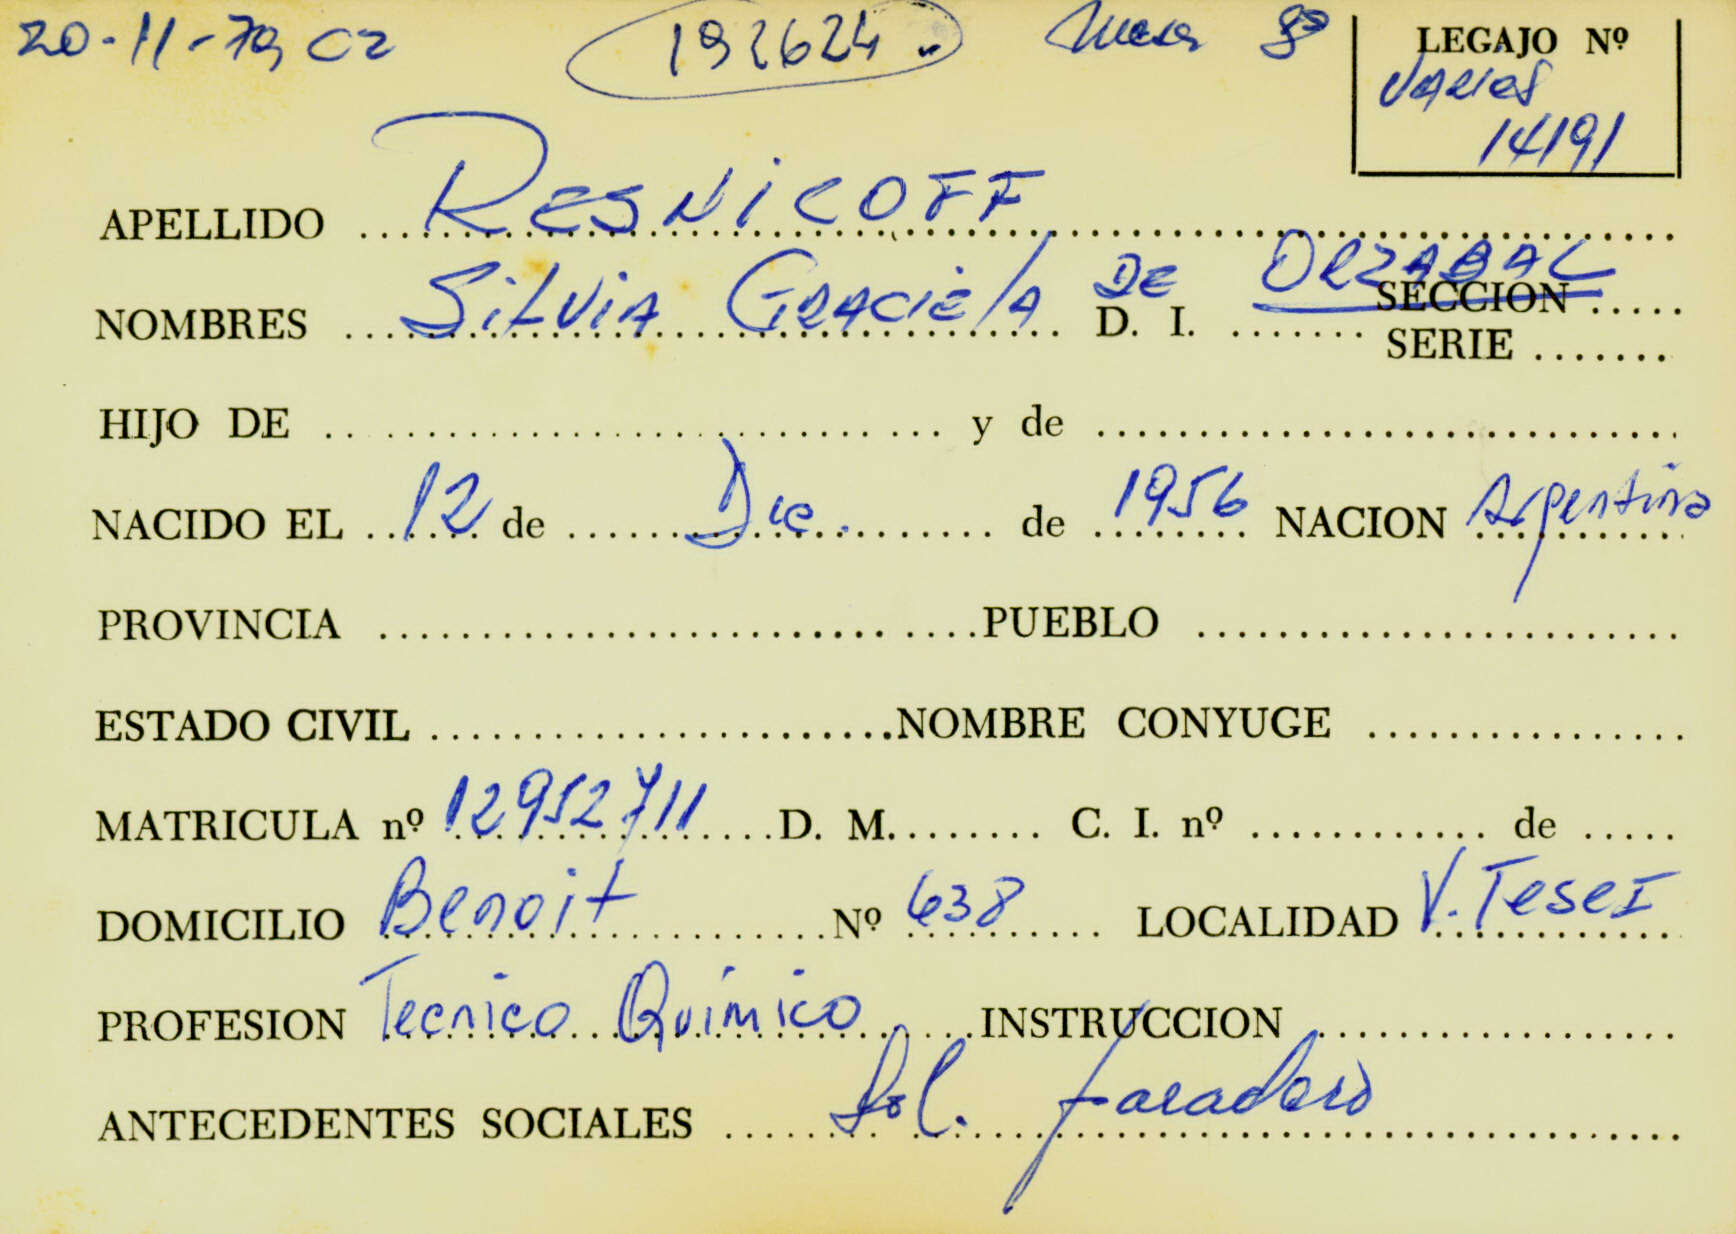 20-11-79 CZ 192624 Mesa 8º LEGAJO Nº
VARIOS
14191
APELLIDO RESNICOFF
NOMBRES SILVIA GRACIELA DE ORZABAL D. I. SECCION
SERIE
HIJO DE y de
NACIDO EL 12 de Dic. de 1956 NACION Argentina
PROVINCIA PUEBLO
ESTADO CIVIL NOMBRE CONYUGE
MATRICULA nº 12952711 D. M. C. I. nº de
DOMICILIO Benoit Nº 638 LOCALIDAD V. Tesei
PROFESION Tecnico Químico INSTRUCCION
ANTECEDENTES SOCIALES Sol. paradero